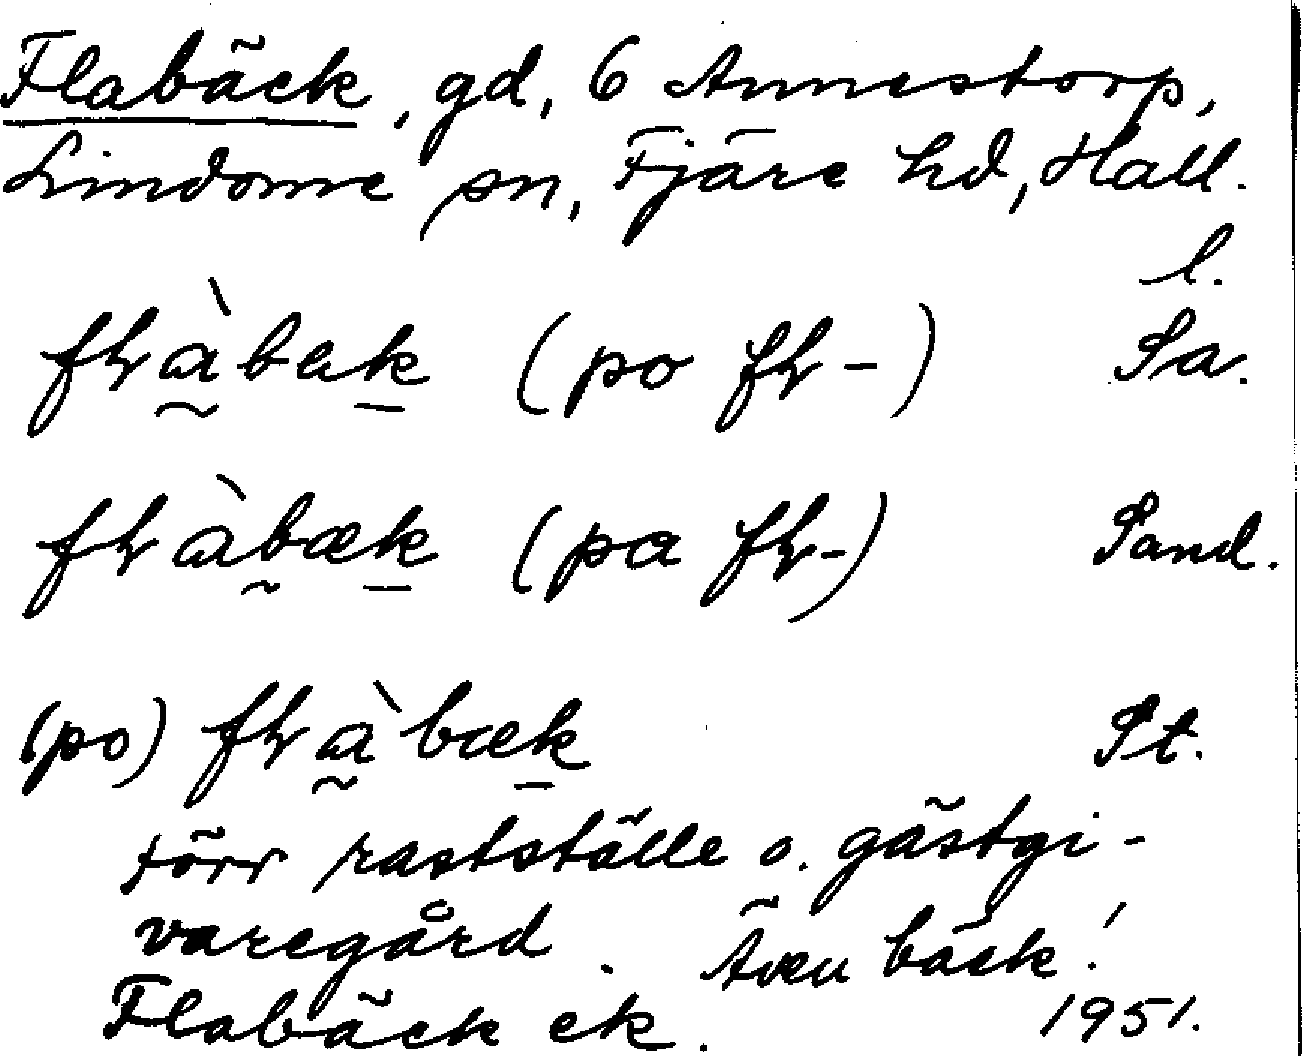 Flabäck, gd, 6 Annestorp,
Lindome sn, Fjäre hd, Hall.
l.
(po fɫ-) Sa.
(pa fɫ-) Sand.
(po) St.
förr rastställe o. gästgi-
varegård. Även bäck!
Flabäck ek. 1951.